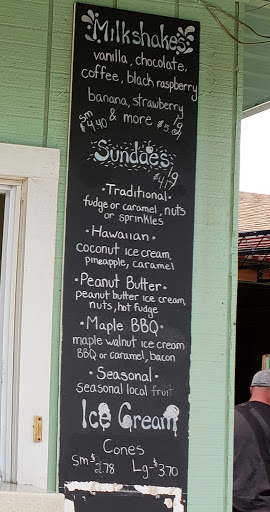 Milkshakes
vanilla, chocolate,
coffee, black raspberry
banana, strawberry
& more
Sm
$4.40
lg
Sundaes
lg
• Traditional •
fudge or caramel, nuts
or sprinkles
• Hawaiian •
coconut ice cream,
pineapple, caramel
• Peanut Butter •
peanut butter ice cream
nuts, hot fudge
• Maple BBQ •
maple walnut ice cream
BBQ or caramel, bacon
• Seasonal •
seasonal local fruit
Ice Cream
Cones
Sm $2.78 Lg-$3.70